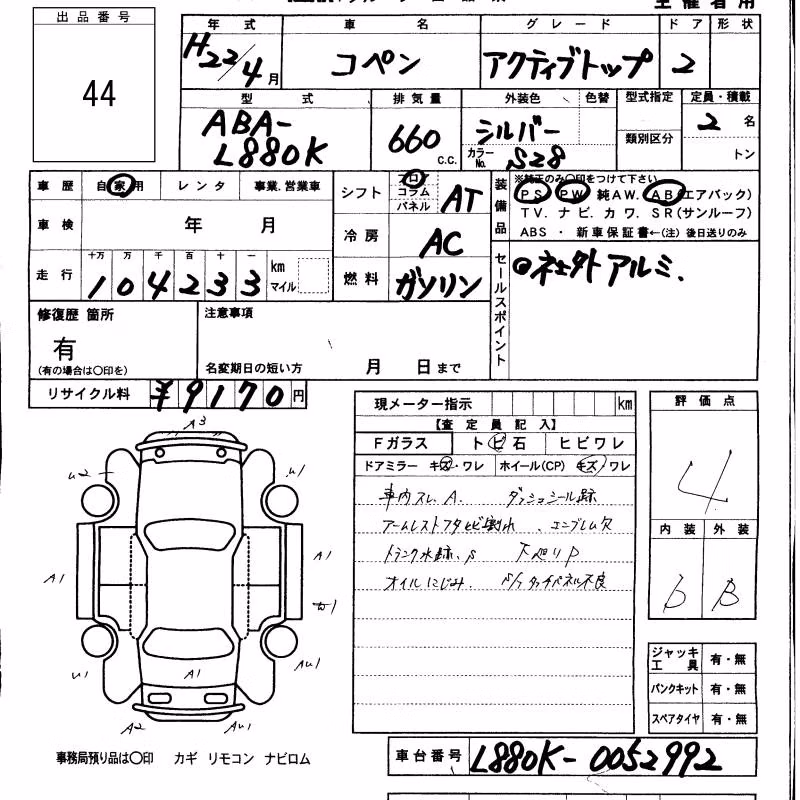 主催者用
出品番号
44
年式 車名 グレード ドア 形状
H22/4月 コペン アクティブトップ 2
型式 排気量 外装色 色替 型式指定 定員・積載
ABA-L880K 660 C.C. シルバー 2名
カラーNo. S28 類別区分 トン
車歴 自家用 レンタ 事業.営業車 シフト フロア コラム パネル AT
装備品 ※純正のみ〇印をつけて下さい
PS PW 純AW. AB(エアバック)
TV. ナビ. カワ. SR(サンルーフ)
ABS ・ 新車保証書←(注)後日送りのみ
車検 年 月 冷房 AC
走行 十万 万 千 百 十 一 km マイル
104233 燃料 ガソリン
セールスポイント
アルミ.
修復歴 箇所 注意事項
有
(有の場合は〇印を) 名変期日の短い方 月 日まで
リサイクル料 ¥9170円
現メーター指示 km 評価点
【査定員記入】
Fガラス トビ石 ヒビワレ
ドアミラー キズ・ワレ ホイール(CP) キズ/ワレ
4
車内スレ.A.
アームレストフタヒビ割れ 、エンブレム欠
トランク水跡.S 下廻りP
オイルにじみ.
内装 外装
b B
A3
u2 u1
A1 A1
u1 Au1
A1
A2 Au1
ジャッキ工具 有・無
パンクキット 有・無
スペアタイヤ 有・無
事務局預り品は〇印 カギ リモコン ナビロム
車台番号 L880K-0052992